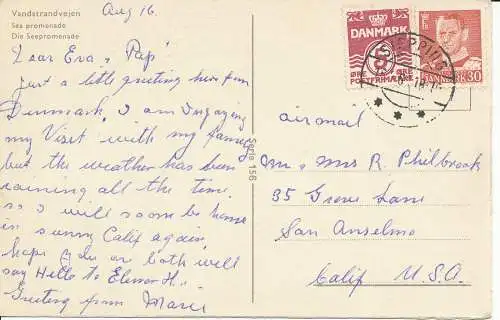 Vandstrandvejen
Sea promenade
Die Seepromenade
Aug 16.
Dear Eva, & Pap!
Just a little greeting here from
Denmark, I am Injoying
my Visit with my family
but the weather has been
raining all the time.
so I will soon be home
in sunny Calif again,
hope you are both well
say Hello to Elenor H.
Greeting from
Serie 156
DANMARK
5
ØRE ØRE
POSTFRIMÆRKE
30
air mail
Mr & Mrs R. Philbrook
35 Grove Lane
San Anselmo
Calif U.S.A.